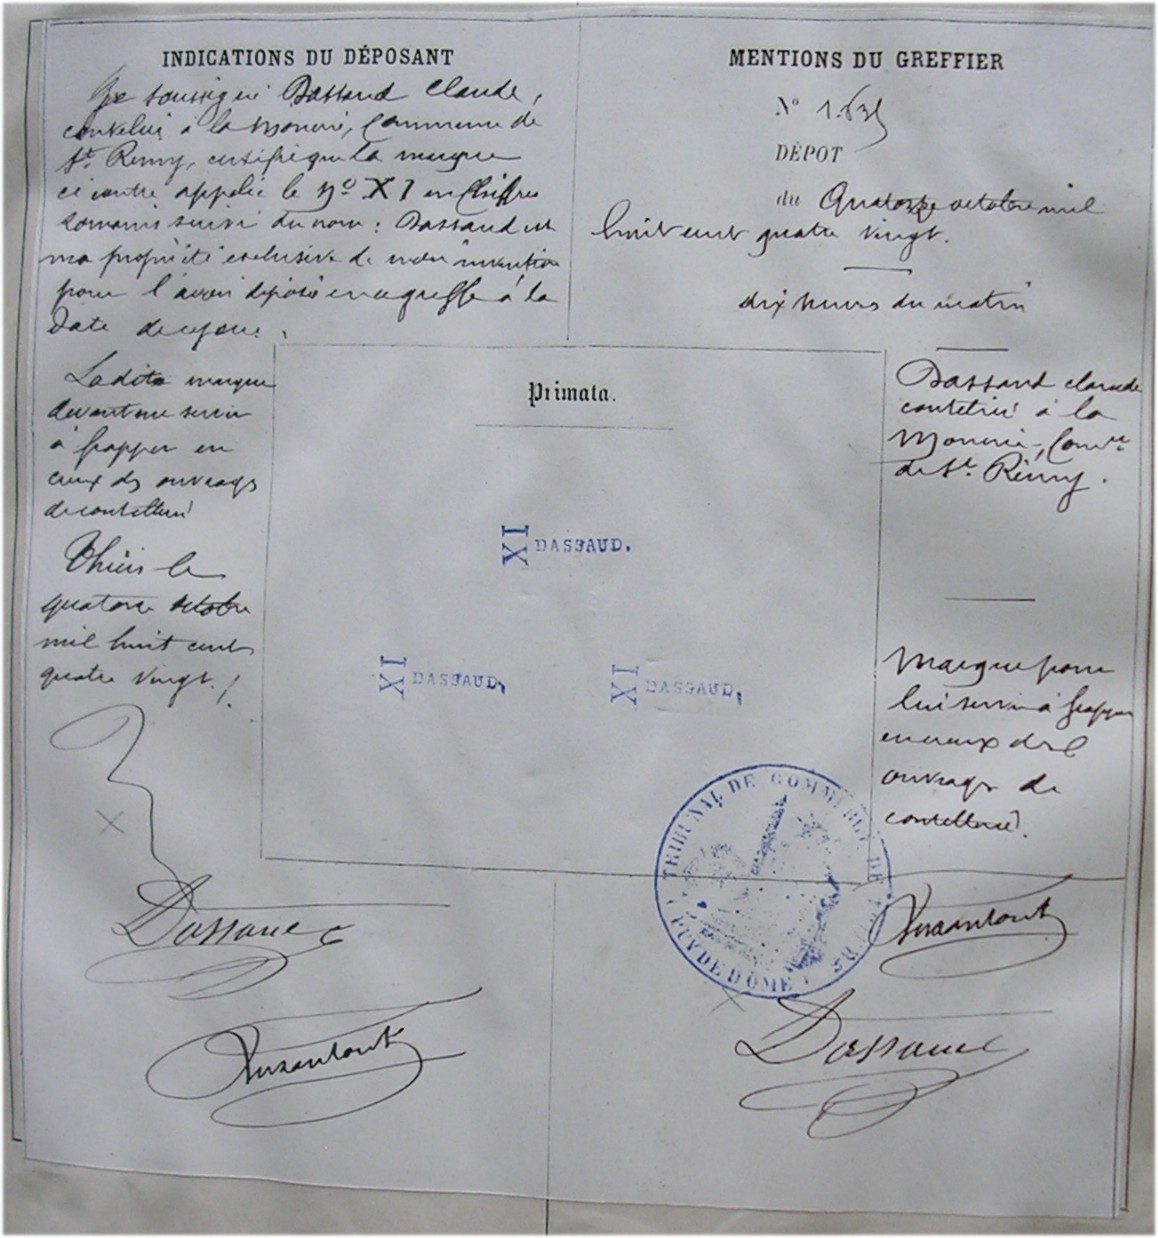 INDICATIONS DU DÉPOSANT
Je soussigné Dassaud Claude,
coutelier à la Monerie, Commune de
St. Remy, certifie que la marque
ci contre appelée le No XI en chiffres
romains suivi du nom : Dassaud est
ma propriété exclusive de mon invention
pour l'avoir déposée au greffe à la
Date de ce jour.
Ladite marque
devant me servir
à frapper en
creux des ouvrages
de coutellerie
Thiers le
quatorze octobre
mil huit cent
quatre vingt.
Dassaud
MENTIONS DU GREFFIER
No 1.635
DÉPOT
du Quatorze octobre mil
huit cent quatre vingt.
dix heures du matin
Primata.
XI DASSAUD.
XI DASSAUD,
XI DASSAUD,
Dassaud claude
coutelier à la
Monerie, Comne
de St. Rémy.
Marque pour
lui servir à frapper
en creux des
ouvrages de
coutellerie.
TRIBUNAL DE COMMERCE DE THIERS
PUY DE DOME
Dassaud